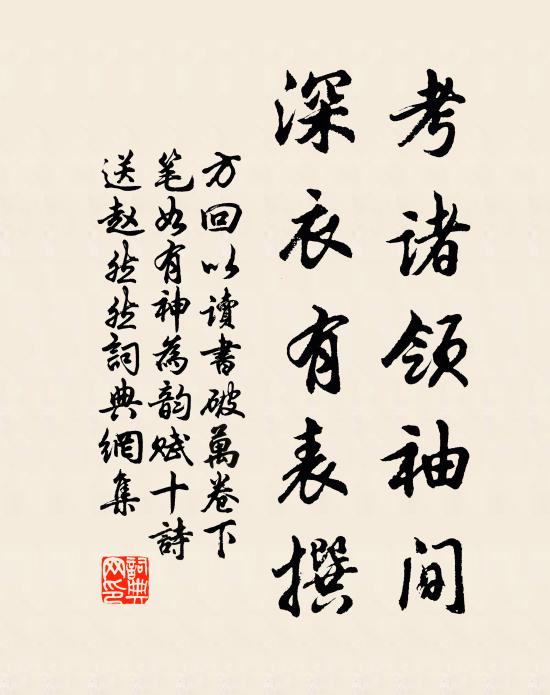 考诸领袖间
深衣有表撰
方回以讀書破萬卷下
笔如有神為韵赋十詩
送赵然然詞典網集
詞典
网印